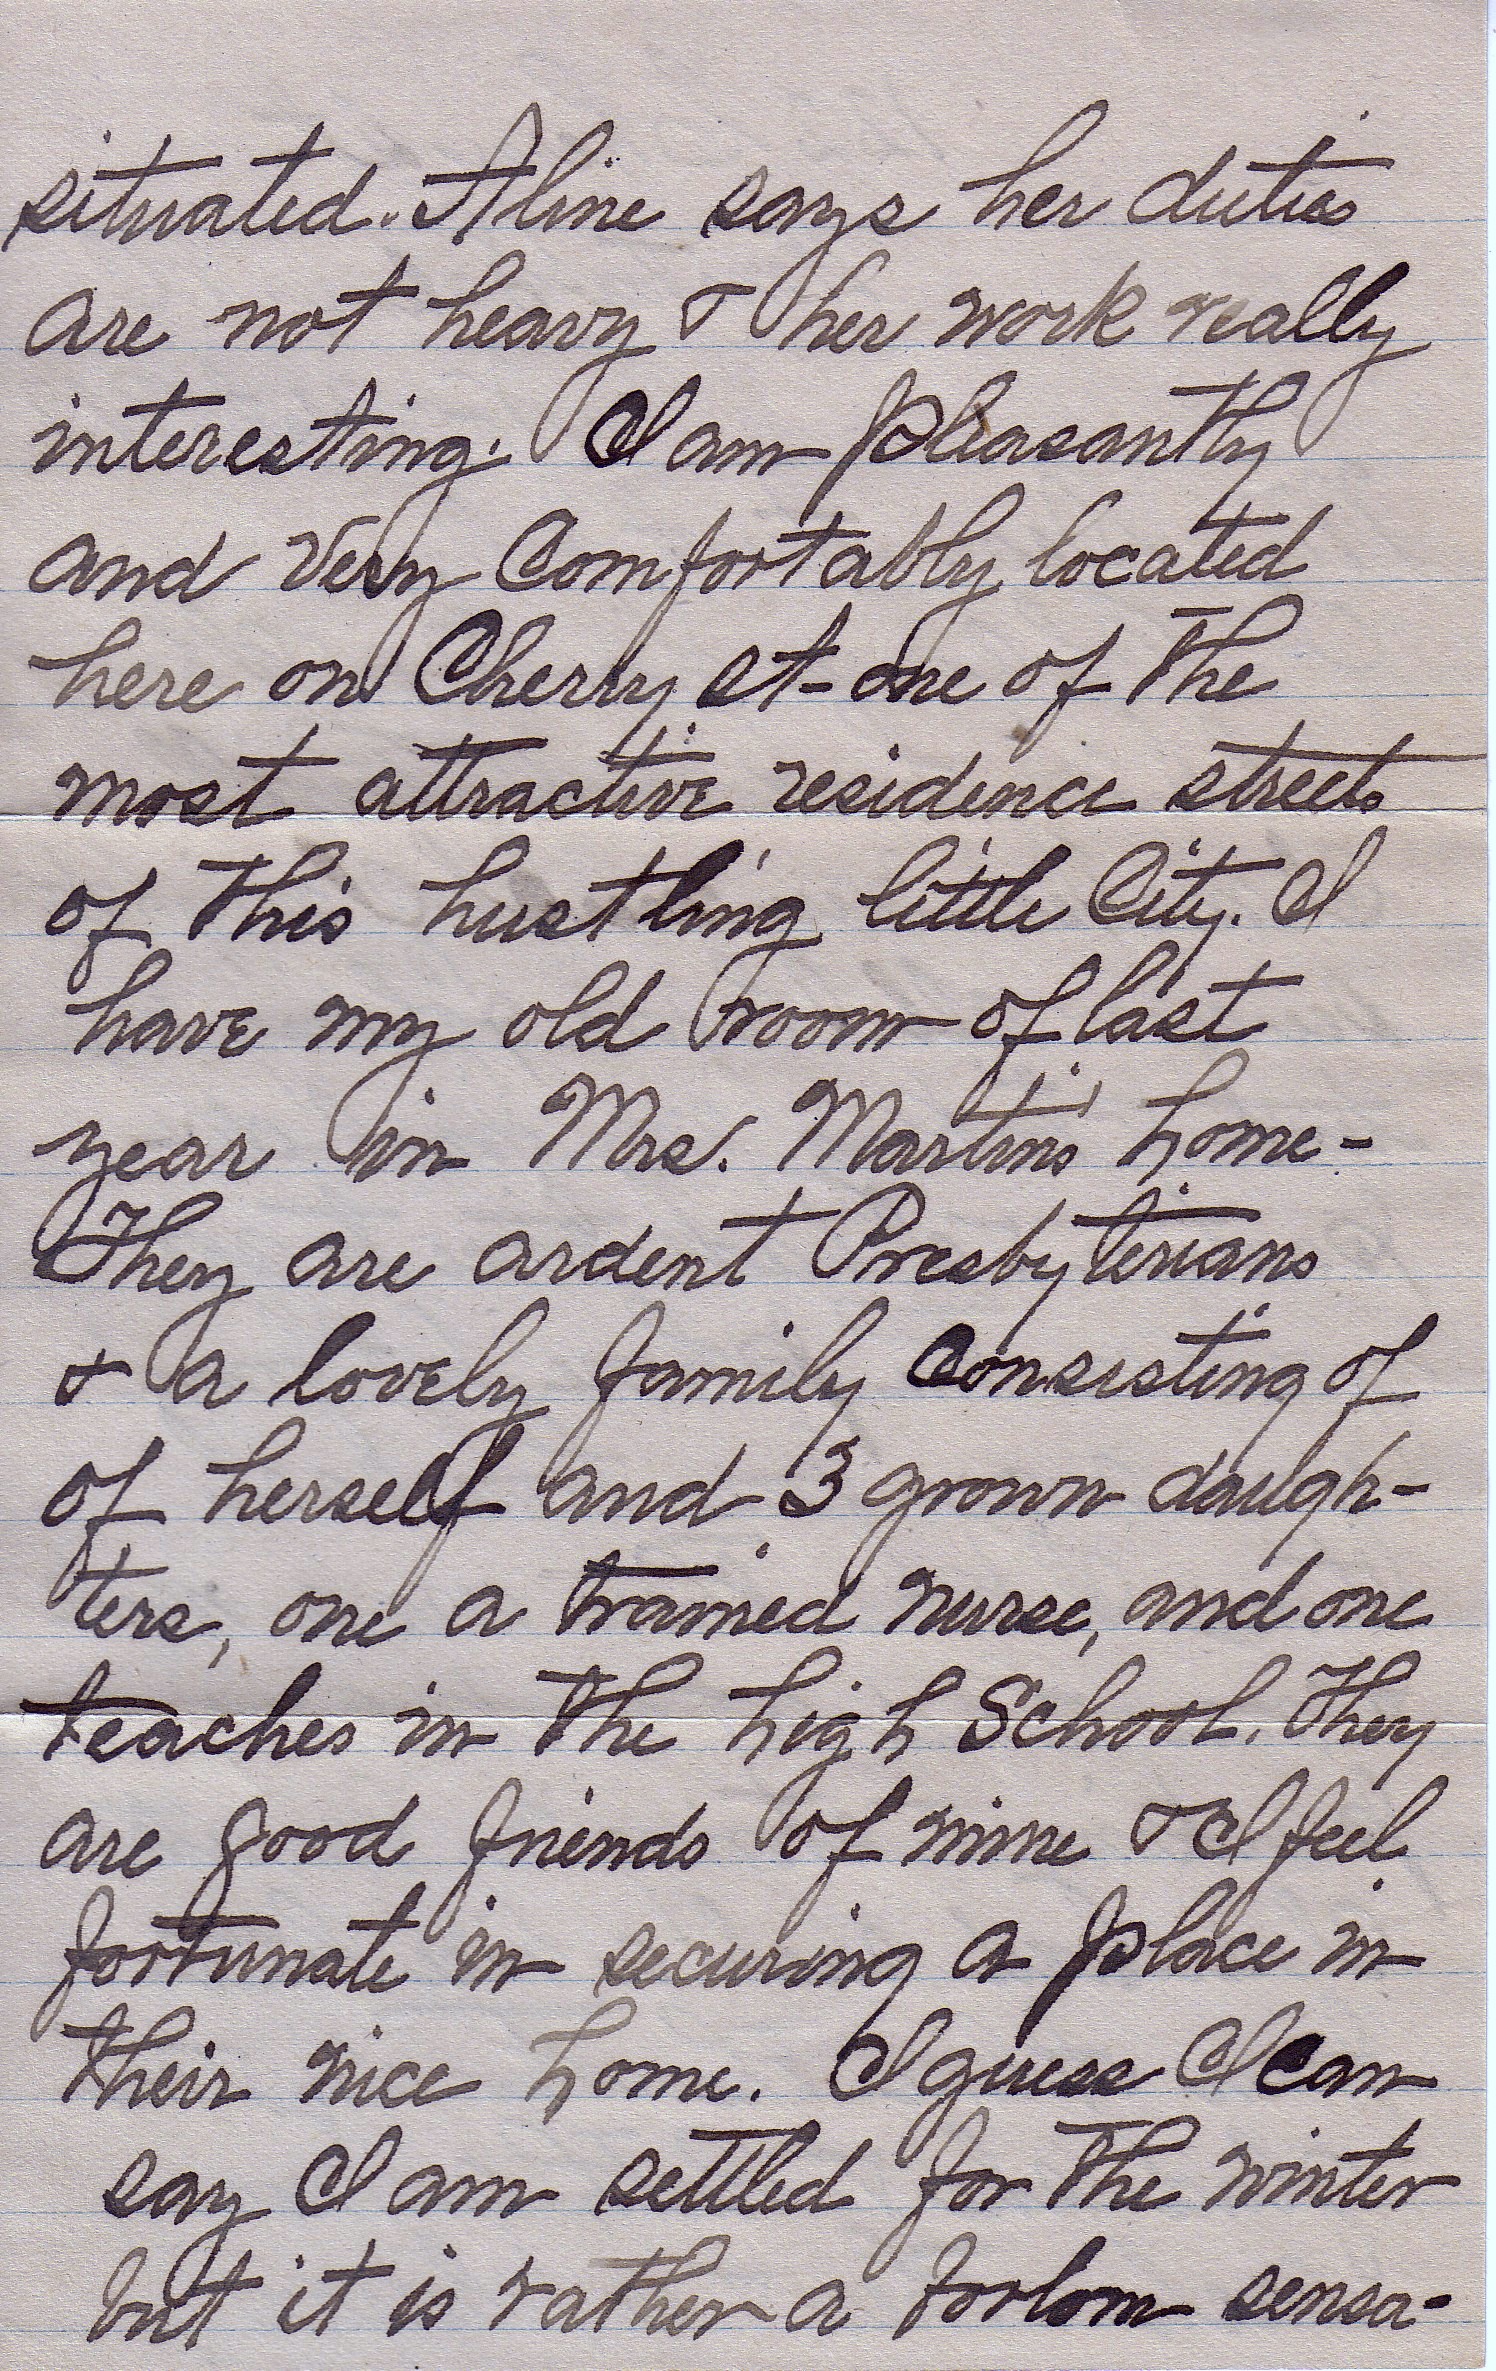 situated. Aline says her duties
are not heavy & her work really
interesting. I am pleasantly
and very Comfortably located
here on Cherry st - one of the
most attractive residence streets
of this hustling little City. I
have my old room of last
year in Mrs. Martin's home -
They are ardent Presbyterians
& a lovely family Consisting of
of herself and 3 grown daugh-
ters, one a trained nurse, and one
teaches in the high School. They
are good friends of mine & I feel
fortunate in securing a place in
their nice home. I guess I can
say I am settled for the winter
but it is rather a forlorn sensa-